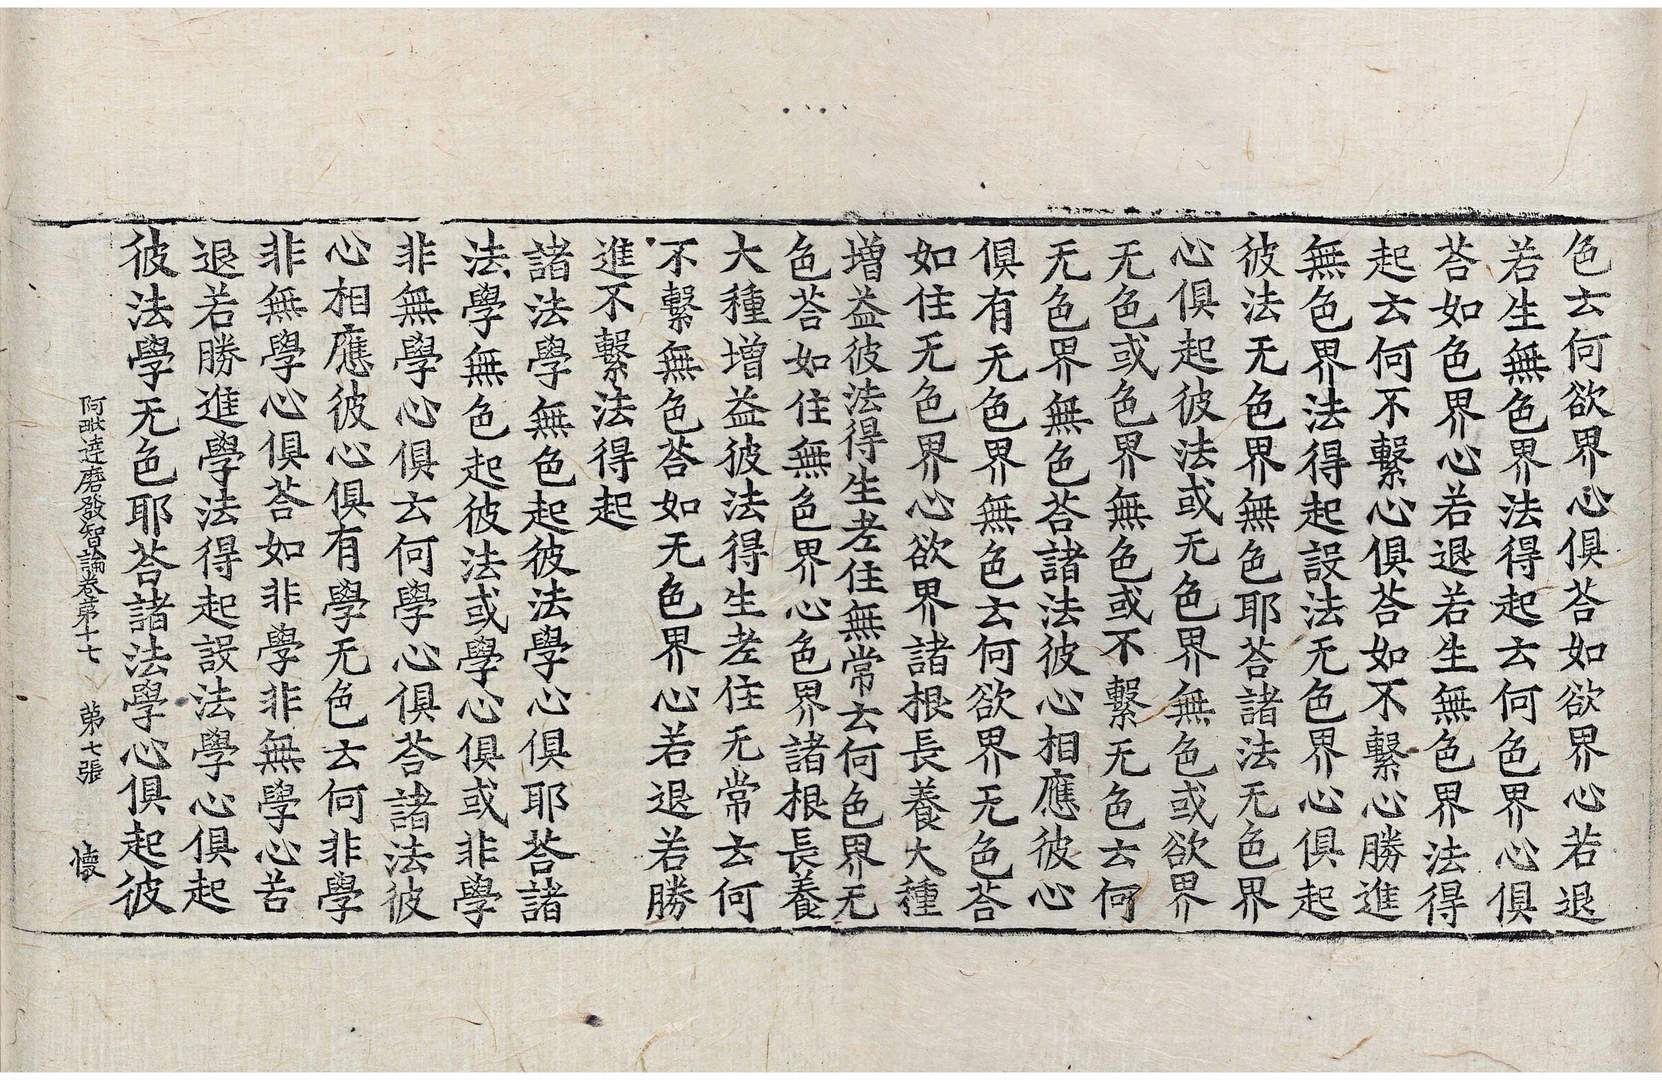 色云何欲界心俱荅如欲界心若退
若生無色界法得起云何色界心俱
荅如色界心若退若生無色界法得
起云何不繫心俱荅如不繫心勝進
無色界法得起設法无色界心俱起
彼法无色界無色耶荅諸法无色界
心俱起彼法或无色界無色或欲界
无色或色界無色或不繫无色云何
无色界無色荅諸法彼心相應彼心
俱有无色界無色云何欲界无色荅
如住无色界心欲界諸根長養大種
增益彼法得生老住無常云何色界无
色荅如住無色界心色界諸根長養
大種增益彼法得生老住无常云何
不繫無色荅如无色界心若退若勝
進不繫法得起
諸法學無色起彼法學心俱耶荅諸
法學無色起彼法或學心俱或非學
非無學心俱云何學心俱荅諸法彼
心相應彼心俱有學无色云何非學
非無學心俱荅如非學非無學心若
退若勝進學法得起設法學心俱起
彼法學无色耶荅諸法學心俱起彼
阿毗達磨發智論卷第十七 第七張 懷